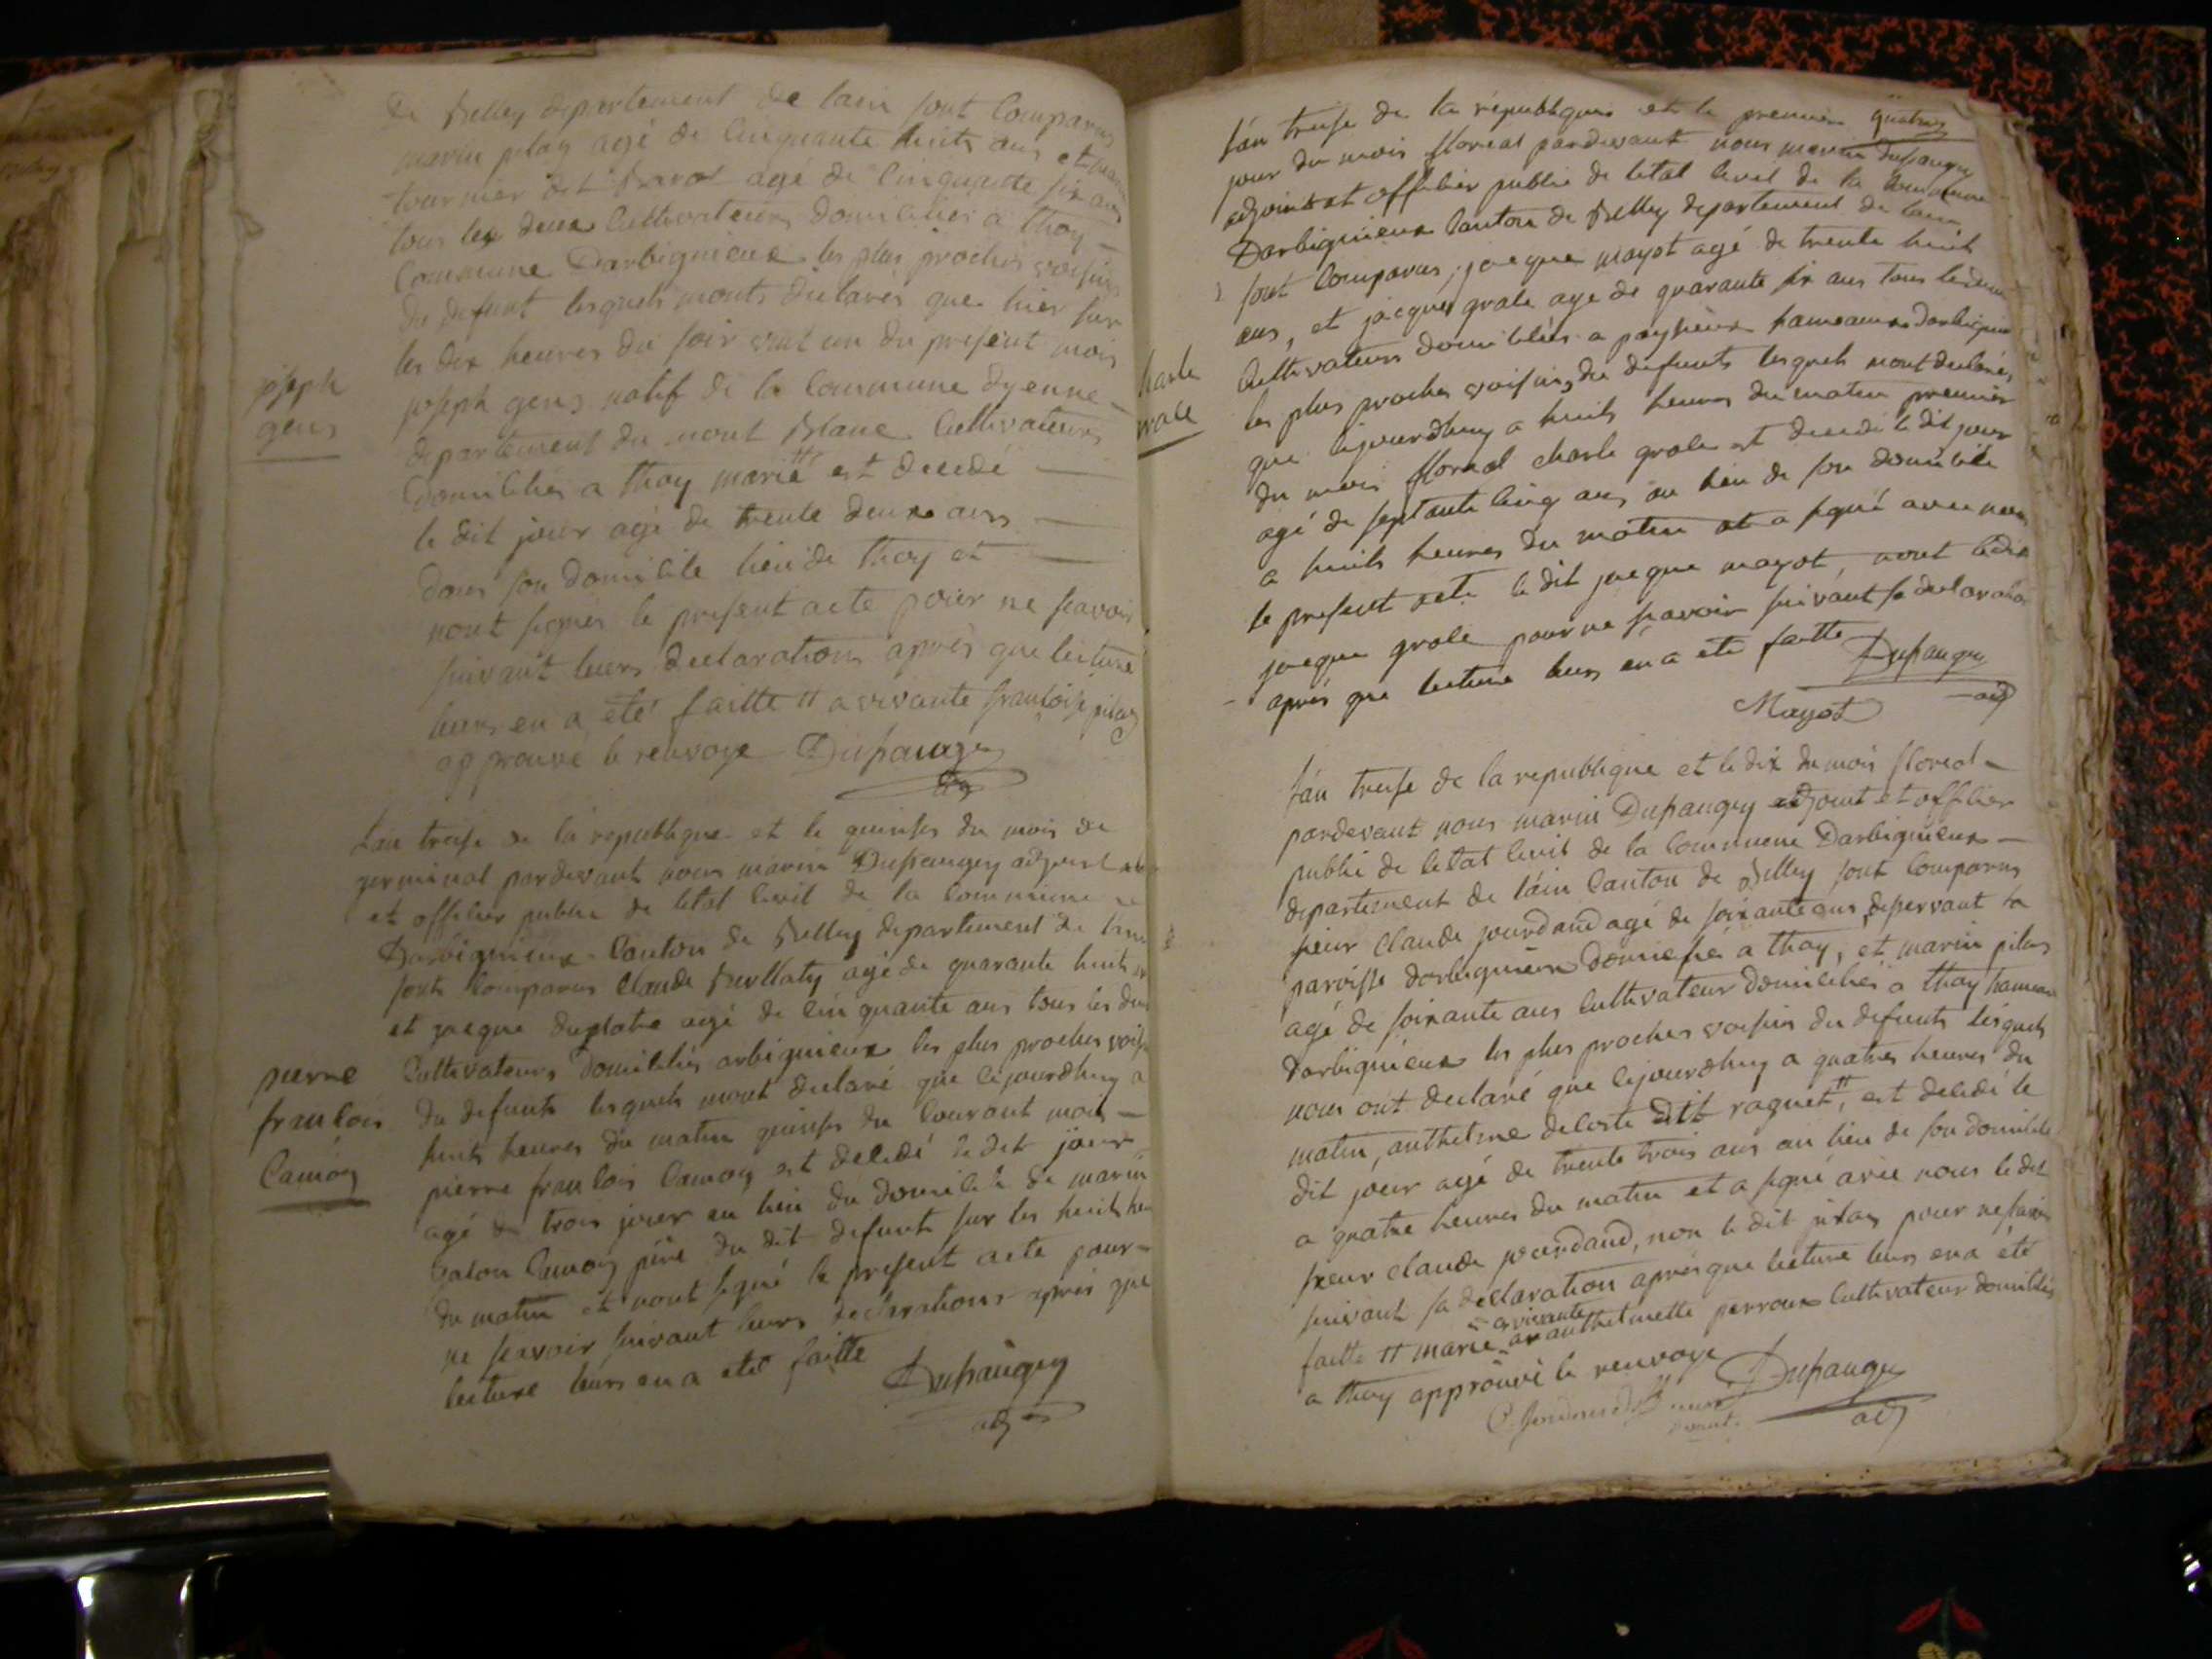 de Belley departement de lain sont Comparus
marin pilaz agé de Cinquante huits ans et marin
tournier dit Baron agé de Cinquante six ans
tous les deux Cultivateurs domiciliés a thoy
Commune Darbignieux les plus proches voisins
du defunt lesquels nonts declarés que hier sur
les dix heures du soir vint un du present mois
joseph gens natif de la Commune dyenne
departement du mont Blanc Cultivateurs
Domiciliés a thoy marié # est decedé
le dit jour agé de trente deux ans
dans son domicile lieu de thoy et
nont signés le present acte pour ne scavoir
suivant leurs declarations après que lecture
leurs en a été faitte # a vivante francoise pilaz
approuvé le renvoye Dupaugey
adj
joseph
gens
Lan treise de la republique et le quinses du mois de
germinal pardevant nous marin Dupaugey adjoint
et officier public de letat civil de la Commune
Darbignieux Canton de Belley departement de lain
sonts Comparus Claude Burllaty agé de quarante huits
et jacque duplatre agé de cinquante ans tous les deux
Cultivateurs Domiciliés arbignieux les plus proches voisins
du defunts lesquels nont declaré que cejourdhuy a
huits heures du matin quinses du Courant mois
pierre francois Camoz est decedé le dit jour
agé de trois jour au lieu du domicile de marin
Camoz père du dit defunts sur les huits heu
du matin et nont signé le present acte pour
ne scavoir suivant leurs declarations après que
lecture leurs en a eté faitte Dupaugey
adj
pierre
francois
Camoz
lán treise de la république et le premier quatres
jour du mois floreal pardevant nous marin Dupaugey
adjoint et officier public de letat civil de la Commune
Darbignieux Canton de Belley departement de lain
sont Comparus, jacque mayot agé de trente huit
ans, et jacques grole age de quarante six ans tous les deux
Cultivateurs domiciliés a peyzieux hameaux darbignieux
les plus proches voisins du defunts lesquels nont declarés
que cejourdhuy a huits heures du matin premier
du mois floreal charle grole est decedé le dit jour
agé de septante cinq ans au lieu de son domicile
a huits heures du matin et a signé avec nous
le present acte le dit jacque mayot, nont ledit
jacque grole pour ne scavoir suivant sa declaration
après que lecture leurs en a eté faitte Dupaugey
Mayot adj
charle
grole
lán treise de la republique et le dix du mois floreal
pardevant nous marin Dupaugey adjoint et officier
public de letat civil de la Commune Darbignieux
departement de láin Canton de Belley sont Comparus
sieur Claude jourdand agé de soixante ans, deservant la
paroisse darbignieux domicilié a thoy, et marin pilaz
agé de soixante ans Cultivateur domiciliés a thoy hameau
Darbignieux les plus proches voisins du defunts lesquels
nous ont declaré que cejourdhuy a quatres heures du
matin, anthelme deloste dit raquet #, est decedé le
dit jour agé de trente trois ans au lieu de son domicile
a quatre heures du matin et a signé avec nous le dit
sieur claude jourdand, non le dit pilaz pour ne scavoir
suivant sa declaration après que lecture leurs en a été
faitte # marié a vivante anthelmette perroux Cultivateur domiciliés
a thoy approuvé le renvoye Dupaugey
C. Jourdand adj